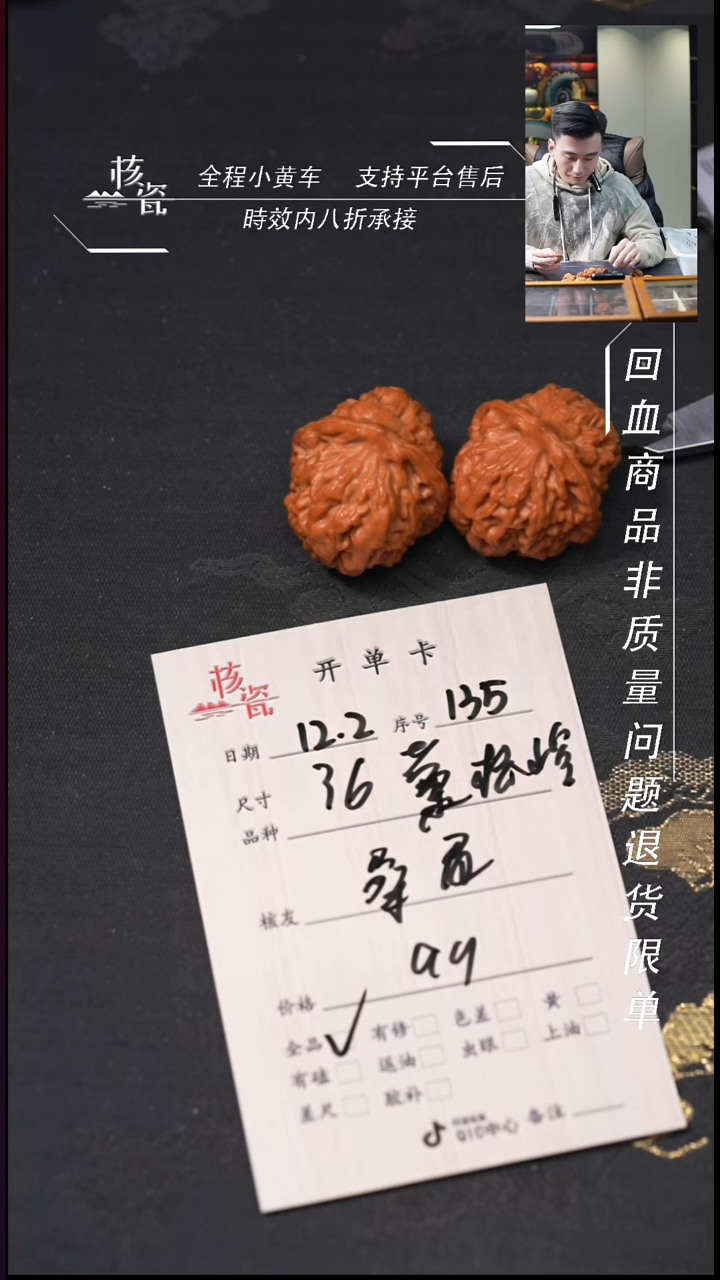 核瓷
全程小黄车 支持平台售后
時效内八折承接
回血商品非质量问题退货限单
核瓷
开单卡
日期 12.2 序号 135
尺寸 36
品种
核友
价格
全品 ✓ 有修 色差 黄
有磕 返油 虫眼 上油
差尺 胶补
QIC中心 备注